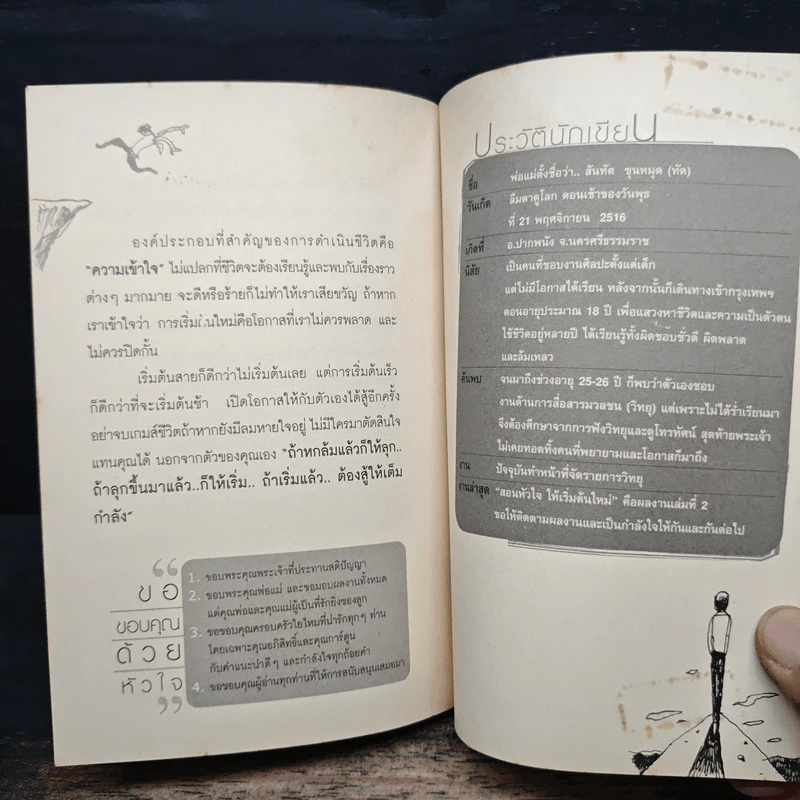 องค์ประกอบที่สำคัญของการดำเนินชีวิตคือ
"ความเข้าใจ" ไม่แปลกที่ชีวิตจะต้องเรียนรู้และพบกับเรื่องราว
ต่างๆ มากมาย จะดีหรือร้ายก็ไม่ทำให้เราเสียขวัญ ถ้าหาก
เราเข้าใจว่า การเริ่มต้นใหม่คือโอกาสที่เราไม่ควรพลาด และ
ไม่ควรปิดกั้น
เริ่มต้นสายก็ดีกว่าไม่เริ่มต้นเลย แต่การเริ่มต้นเร็ว
ก็ดีกว่าที่จะเริ่มต้นช้า เปิดโอกาสให้กับตัวเองได้สู้อีกครั้ง
อย่าจบเกมส์ชีวิตถ้าหากยังมีลมหายใจอยู่ ไม่มีใครมาตัดสินใจ
แทนคุณได้ นอกจากตัวของคุณเอง "ถ้าหกล้มแล้วก็ให้ลุก..
ถ้าลุกขึ้นมาแล้ว..ก็ให้เริ่ม.. ถ้าเริ่มแล้ว.. ต้องสู้ให้เต็ม
กำลัง"
“
ขอ
ขอบคุณ
ด้วย
หัวใจ
”
1. ขอบพระคุณพระเจ้าที่ประทานสติปัญญา
2. ขอบพระคุณพ่อแม่ และขอมอบผลงานทั้งหมด
แด่คุณพ่อและคุณแม่ผู้เป็นที่รักยิ่งของลูก
3. ขอขอบคุณครอบครัวใยไหมที่น่ารักทุกๆ ท่าน
โดยเฉพาะคุณอภิสิทธิ์และคุณการ์ตูน
กับคำแนะนำดีๆ และกำลังใจทุกถ้อยคำ
4. ขอขอบคุณผู้อ่านทุกท่านที่ให้การสนับสนุนเสมอมา
ประวัตินักเขียน
ชื่อ พ่อแม่ตั้งชื่อว่า.. สันทัด ขุนหมุด (ทัด)
วันเกิด ลืมตาดูโลก ตอนเช้าของวันพุธ
ที่ 21 พฤศจิกายน 2516
เกิดที่ อ.ปากพนัง จ.นครศรีธรรมราช
นิสัย เป็นคนที่ชอบงานศิลปะตั้งแต่เด็ก
แต่ไม่มีโอกาสได้เรียน หลังจากนั้นก็เดินทางเข้ากรุงเทพฯ
ตอนอายุประมาณ 18 ปี เพื่อแสวงหาชีวิตและความเป็นตัวตน
ใช้ชีวิตอยู่หลายปี ได้เรียนรู้ทั้งผิดชอบชั่วดี ผิดพลาด
และล้มเหลว
ค้นพบ จนมาถึงช่วงอายุ 25-26 ปี ก็พบว่าตัวเองชอบ
งานด้านการสื่อสารมวลชน (วิทยุ) แต่เพราะไม่ได้ร่ำเรียนมา
จึงต้องศึกษาจากการฟังวิทยุและดูโทรทัศน์ สุดท้ายพระเจ้า
ไม่เคยทอดทิ้งคนที่พยายามและโอกาสก็มาถึง
งาน ปัจจุบันทำหน้าที่จัดรายการวิทยุ
งานล่าสุด "สอนหัวใจ ให้เริ่มต้นใหม่" คือผลงานเล่มที่ 2
ขอให้ติดตามผลงานและเป็นกำลังใจให้กันและกันต่อไป